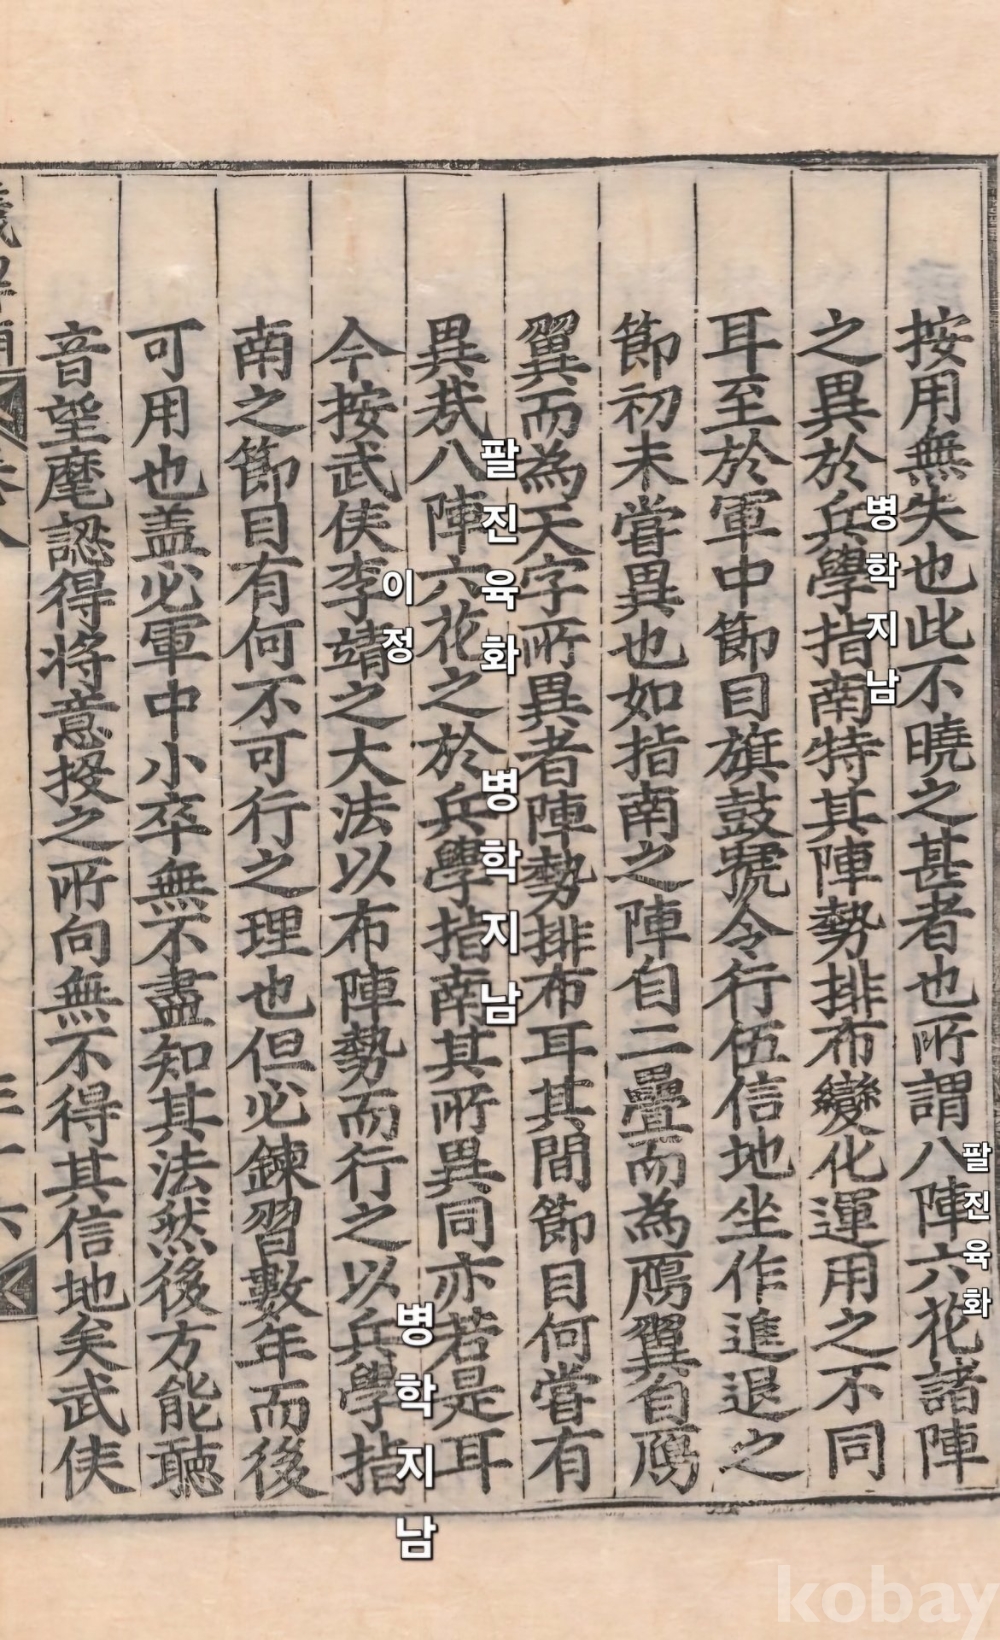 按用無失也此不曉之甚者也所謂八陣六花諸陣
팔진육화
之異於兵學指南特其陣勢排布變化運用之不同
병학지남
耳至於軍中節目旗鼓號令行伍信地坐作進退之
節初未嘗異也如指南之陣自二疊而為鴈翼自鴈
翼而為天字所異者陣勢排布耳其間節目何嘗有
異哉八陣六花之於兵學指南其所異同亦若是耳
팔진육화 병학지남
今按武侯李靖之大法以布陣勢而行之以兵學指
이정
병학지남
南之節目有何不可行之理也但必鍊習數年而後
可用也盖必軍中小卒無不盡知其法然後方能聽
音望麾認得將意投之所向無不得其信地矣武侯
kobay